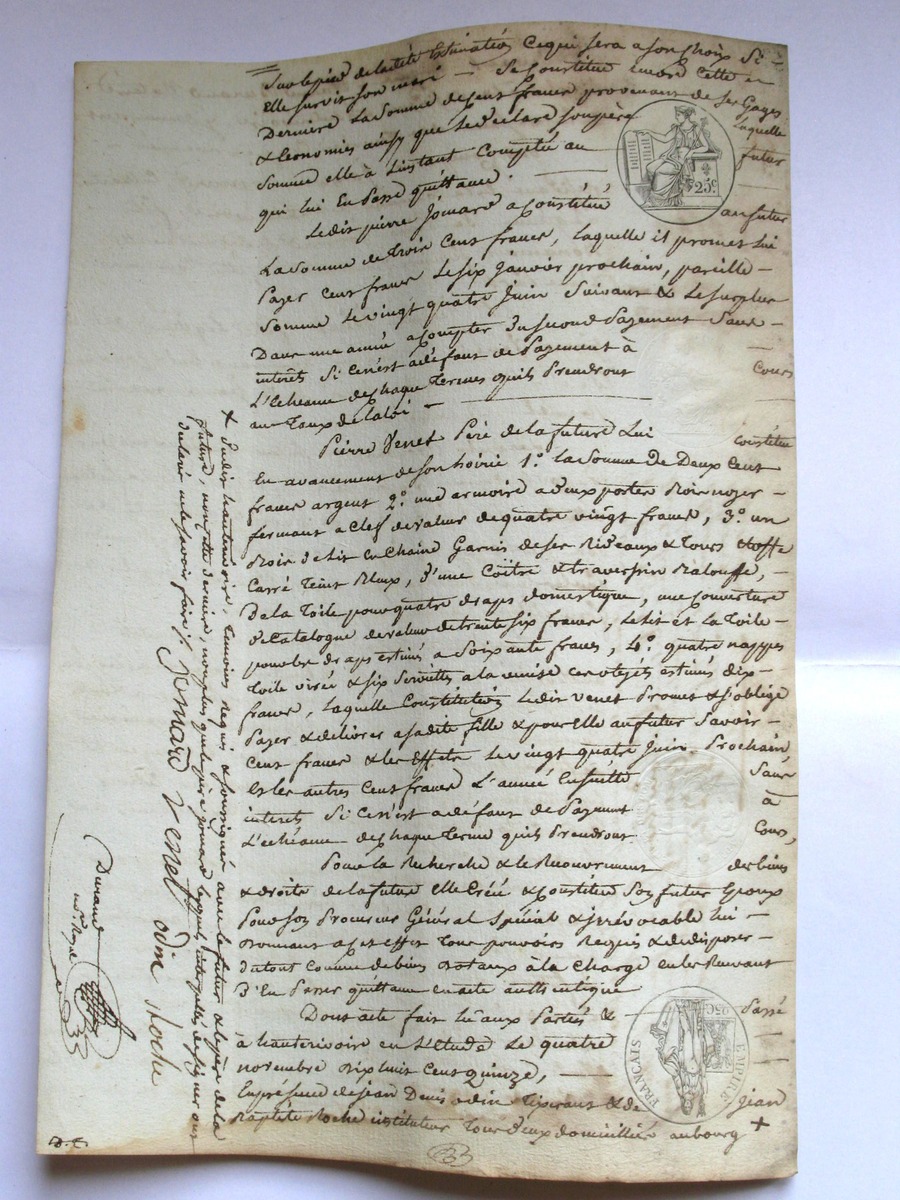 Sur le pied de ladite Estimation Ce qui sera a son choix Si
Elle survit son mari — Se Constitue encore Cette
Derniere La Somme de Cent francs provenant de ses Gages
& Economies ainsy que le declare son père Laquelle
Somme elle à L'instant Comptée au futur
qui lui En Passe quittance.
Ledit pierre Jomard a Constitué au futur
La Somme de Trois Cent francs, laquelle il promet lui
Payer Cent francs le six Janvier prochain, pareille
Somme Le vingt quatre Juin Suivant & Le Surplus
Dans une année a Compter du Second Payement Sans
interets Si Ce n'est à défaut de Payement à
L'Echeance de Chaque Termes quils Prendront Cours
au Taux de la loi —
Pierre Venet Père de la future Lui constitue
En avancement de son hoirie 1.° la Somme de Deux Cent
francs argent 2.° une armoire a deux portes Bois noyer
fermant a Clef de valeur de quatre vingt francs, 3.° un
Bois de Lit en Chaine Garnis de ses Rideaux & Tours
Carré Teint Bleux, d'une Coître & traversin Balouffe,
De la Toile pour quatre draps domestique, une Couverture
de Catalogne de valeur de trente six francs, le lit et La Toile
pour les draps estimés a Soixante francs, 4.° quatre nappes
Toile & six Serviettes a la venise ces objets estimés dix
francs, laquelle Constitution Ledit Venet Promet & s'oblige
Payer & delivrer a sadite fille & pour Elle au futur Savoir
Cent francs & les Effets Le vingt quatre Juin Prochain
Et les autres Cent francs L'année Ensuitte Sans
interets Si Ce n'est a défaut de Payement à
L'échéance de Chaque Terme quils Prendront Cours,
Pour la Recherche & le Recouvrement des biens
& droits de la future Elle Créé & Constitue Son futur Epoux
Pour Son Procureur Général Spécial & irrévocable lui
Donnant a Cet effet Tous pouvoirs Requis & de disposer
du tout Comme de biens dotaux à la Charge en les Recevant
D'En Passer quittance en acte authentique
Dont acte fait lu aux Parties & Passé
à hauterivoire en L'Etude Le quatre
novembre dix huit Cent Quinze, —
En présence de jean Denis odin Tixerant & de jean
Baptiste Roche instituteur Tous deux domiciliés au bourg +
+ dudit hauterivoire, Temoins requis & soussignés avec le futur & le père de la
future, non cette derniere, non plus que le père jomard lesquels interpellés de signer ont
déclaré ne le savoir faire ./.
Jomard Venet odin Roche
Durand
not.re Royal
25c
EMPIRE FRANÇAIS
25C